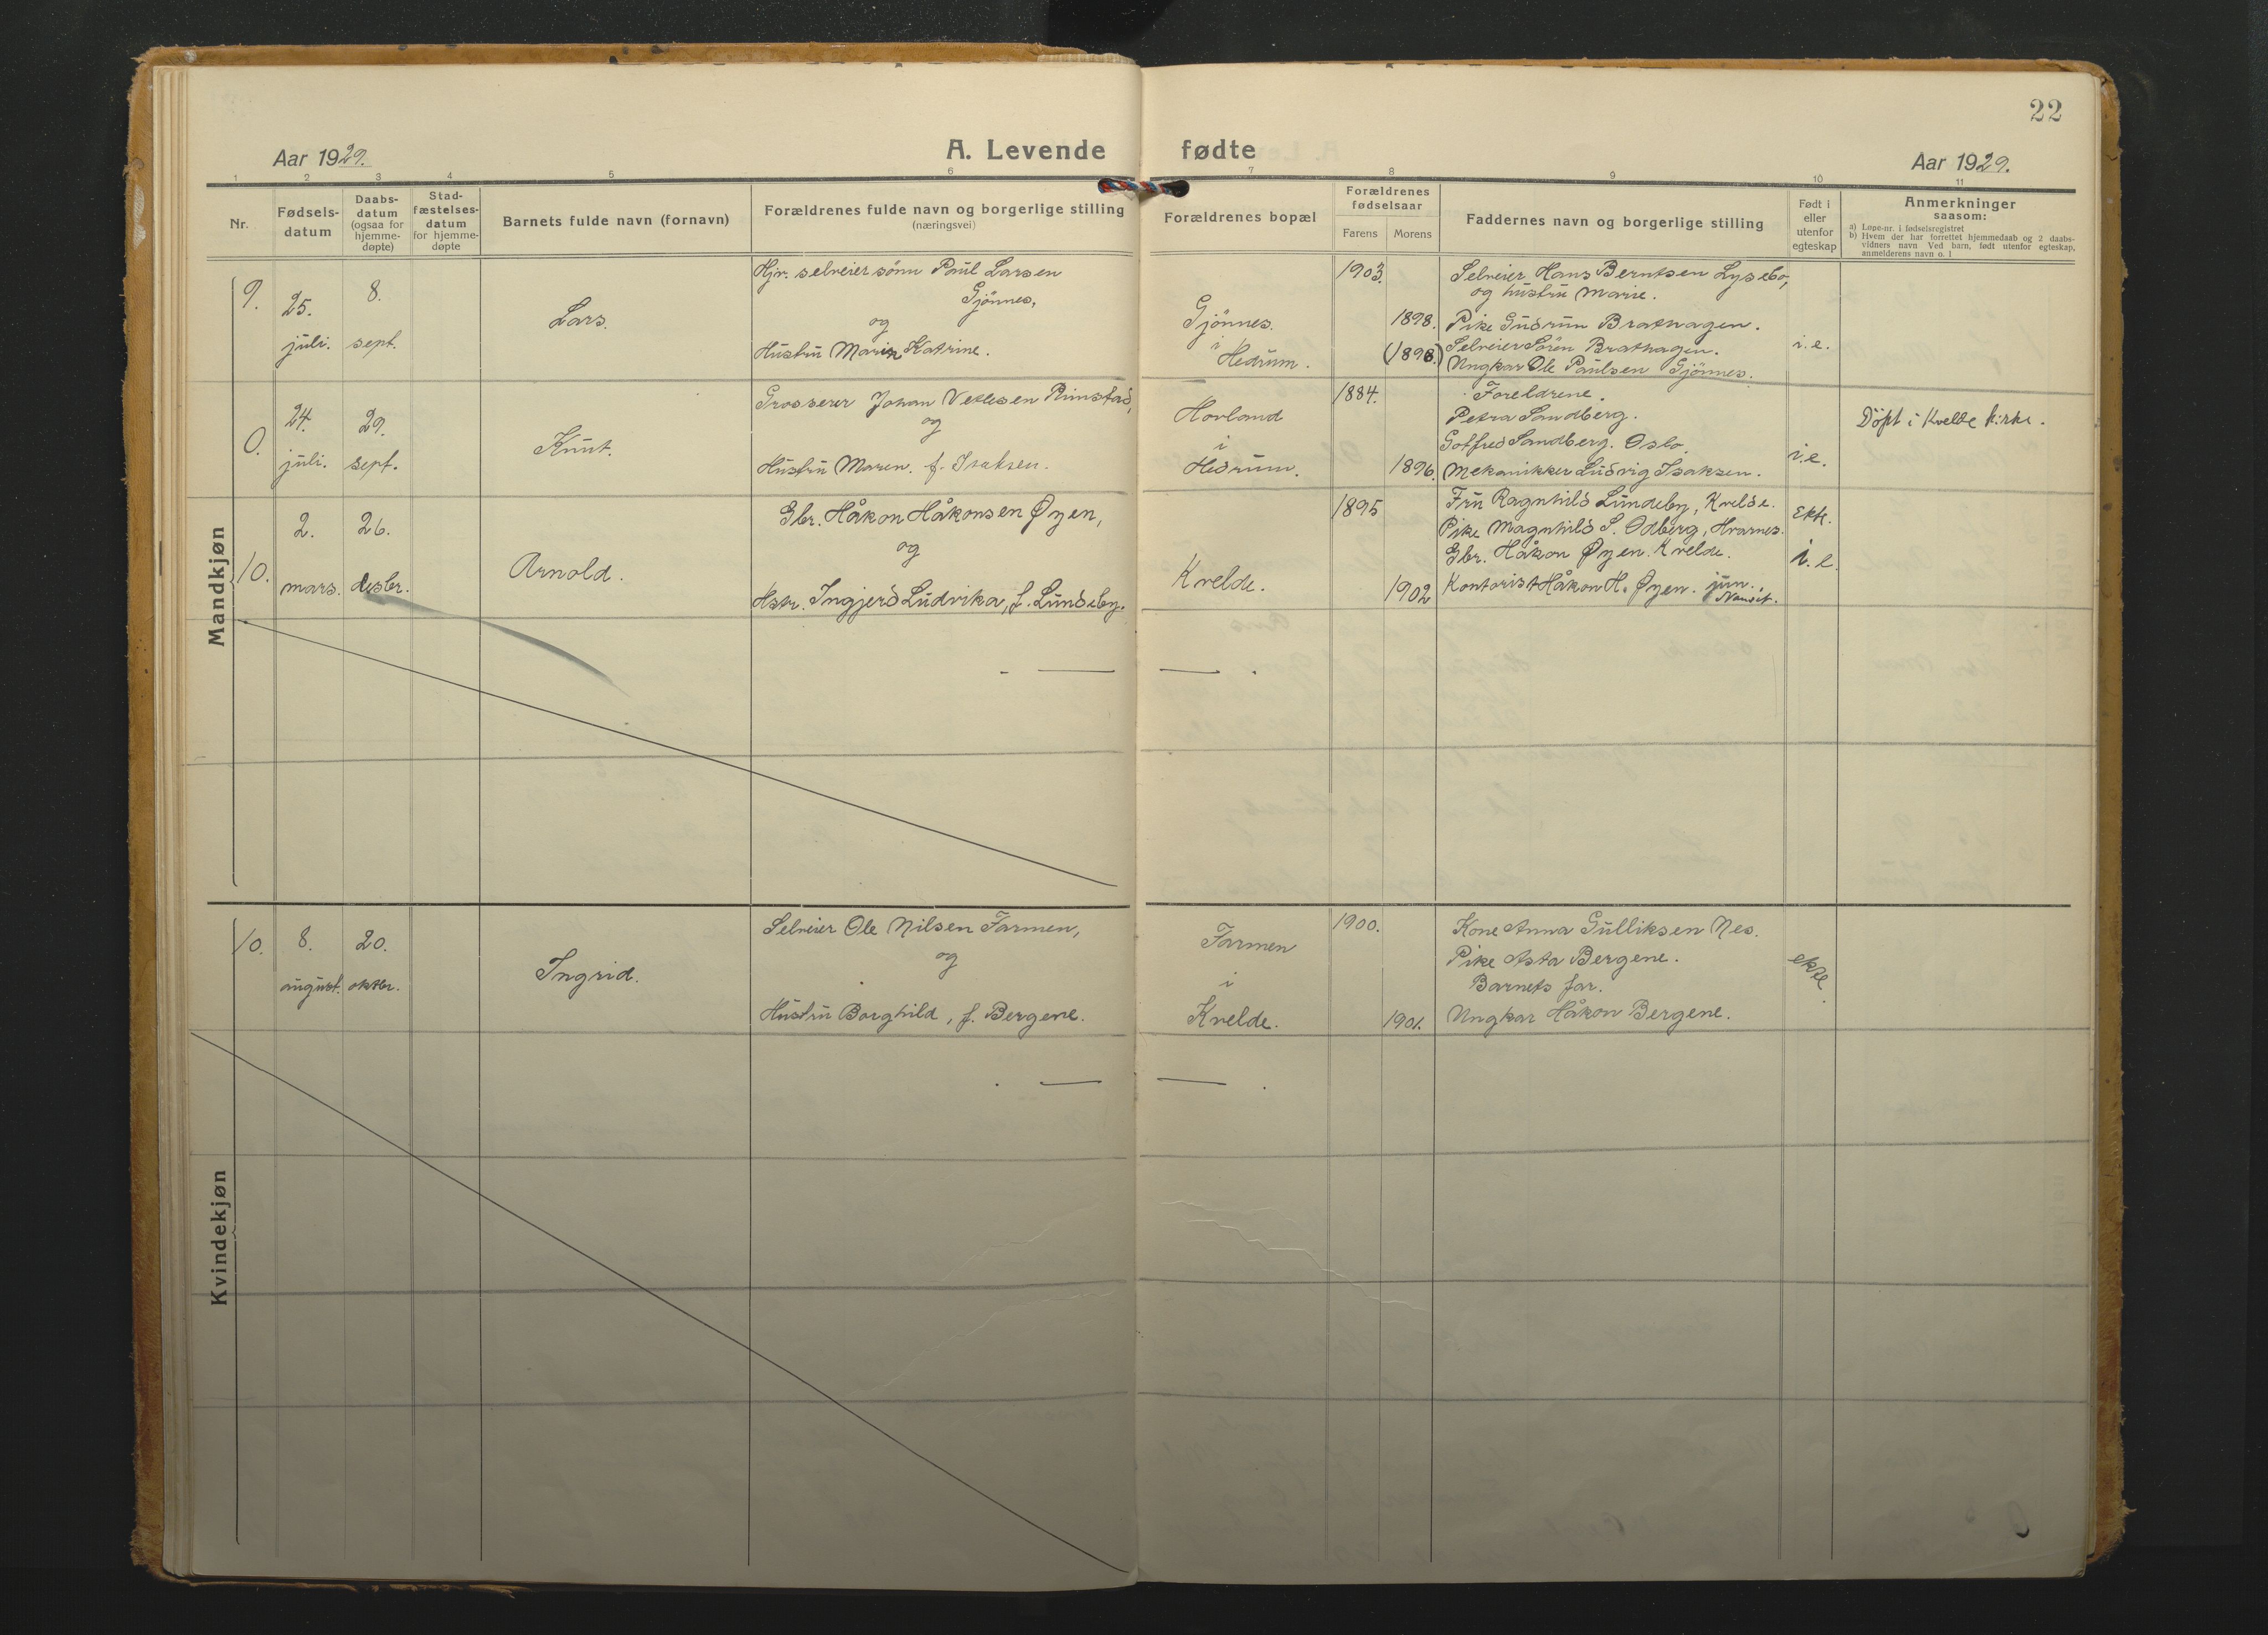 22
Aar 1929.
A. Levende fødte
Aar 1929.
1 2 3 4 5 6 7 8 9 10 11
Nr.
Fødsels-
datum
Daabs-
datum
(ogsaa for
hjemme-
døpte)
Stad-
fæstelses-
datum
for hjemme-
døpte
Barnets fulde navn (fornavn)
Forældrenes fulde navn og borgerlige stilling
(næringsvei)
Forældrenes bopæl
Forældrenes
fødselsaar
Farens Morens
Faddernes navn og borgerlige stilling
Født i
eller
utenfor
egteskap
Anmerkninger
saasom:
a) Løpe-nr. i fødselsregistret
b) Hvem der har forrettet hjemmedaab og 2 daabs-
vidners navn Ved barn, født utenfor egteskap,
anmelderens navn o. l
Mandkjøn
9.
25.
juli.
8.
sept.
Lars.
Hjv. selveiersönn Paul Larsen
Gjönnes,
og
Hustru Marin Katrine.
Gjönnes.
i
Hedrum.
1903.
1898.
(1898)
Selveier Hans Berntsen Lysebo,
og hustru Marie.
Pike Gudrun Brathagen.
Selveier Sören Brathagen.
Ungkar Ole Paulsen Gjönnes.
i.e.
0.
24.
juli.
29.
sept.
Knut.
Grosserer Johan Vetlesen Rimstad,
og
Hustru Maren. f. Isaksen.
Hovland
i
Hedrum.
1884.
1896.
Foreldrene.
Petra Sandberg.
Gotfred Sandberg. Oslo.
Mekanikker Ludvig Isaksen.
i.e.
Döpt i Kvelde kirke.
10.
2.
mars.
26.
desbr.
Arnold.
Gbr. Håkon Håkonsen Øyen,
og
Hstr. Ingjerd Ludvika, f. Lundeby.
Kvelde.
1895
1902
Fru Ragnhild Lundeby, Kvelde.
Pike Magnhild S. Odberg, Hvarnes.
Gbr. Håkon Øyen. Kvelde.
Kontorist Håkon H. Øyen. jun.
ekte.
i.e.
Kvindekjøn
10.
8.
august.
20.
oktbr.
Ingrid.
Selveier Ole Nilsen Farmen,
og
Hustru Borghild, f. Bergene.
Farmen
i
Kvelde.
1900.
1901.
Kone Anna Gulliksen Nes.
Pike Asta Bergene.
Barnets far.
Ungkar Håkon Bergene.
ekte.